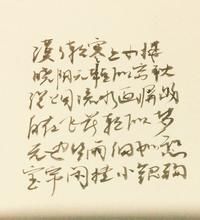 漠々轻寒上小楼
晓阴无赖似穷秋
淡烟流水画屏幽
自在飞花轻似梦
无边丝雨细如愁
宝帘闲挂小银钩